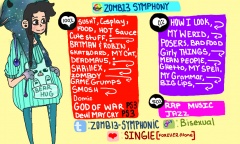 ZOMB13 SYMPHONY
SUSHI, Cosplay,
FOOD, HOT SAUCE
CUTE STUFF,
BATMAN & ROBIN,
SKATEBOARD, MY CAT,
DEADMAU5,
SKRILLEX,
ZOMBOY
GAME GRUMPS
SMOSH
Domie
GOD OF WAR PS3
DEVIL MAY CRY PS3
HOW I LOOK,
MY WEIRD,
POSERS, BAD FOOD
Girly THINGS,
MEAN PEOPLE,
GHETTO, MY SPELL,
MY GRAMMAR,
BIG LIPS,
RAP MUSIC
JAZZ
BEAR
HUG
: ZOMB13-SYMPHONIC
: Bisexual
SINGLE [FOREVER ALONE]